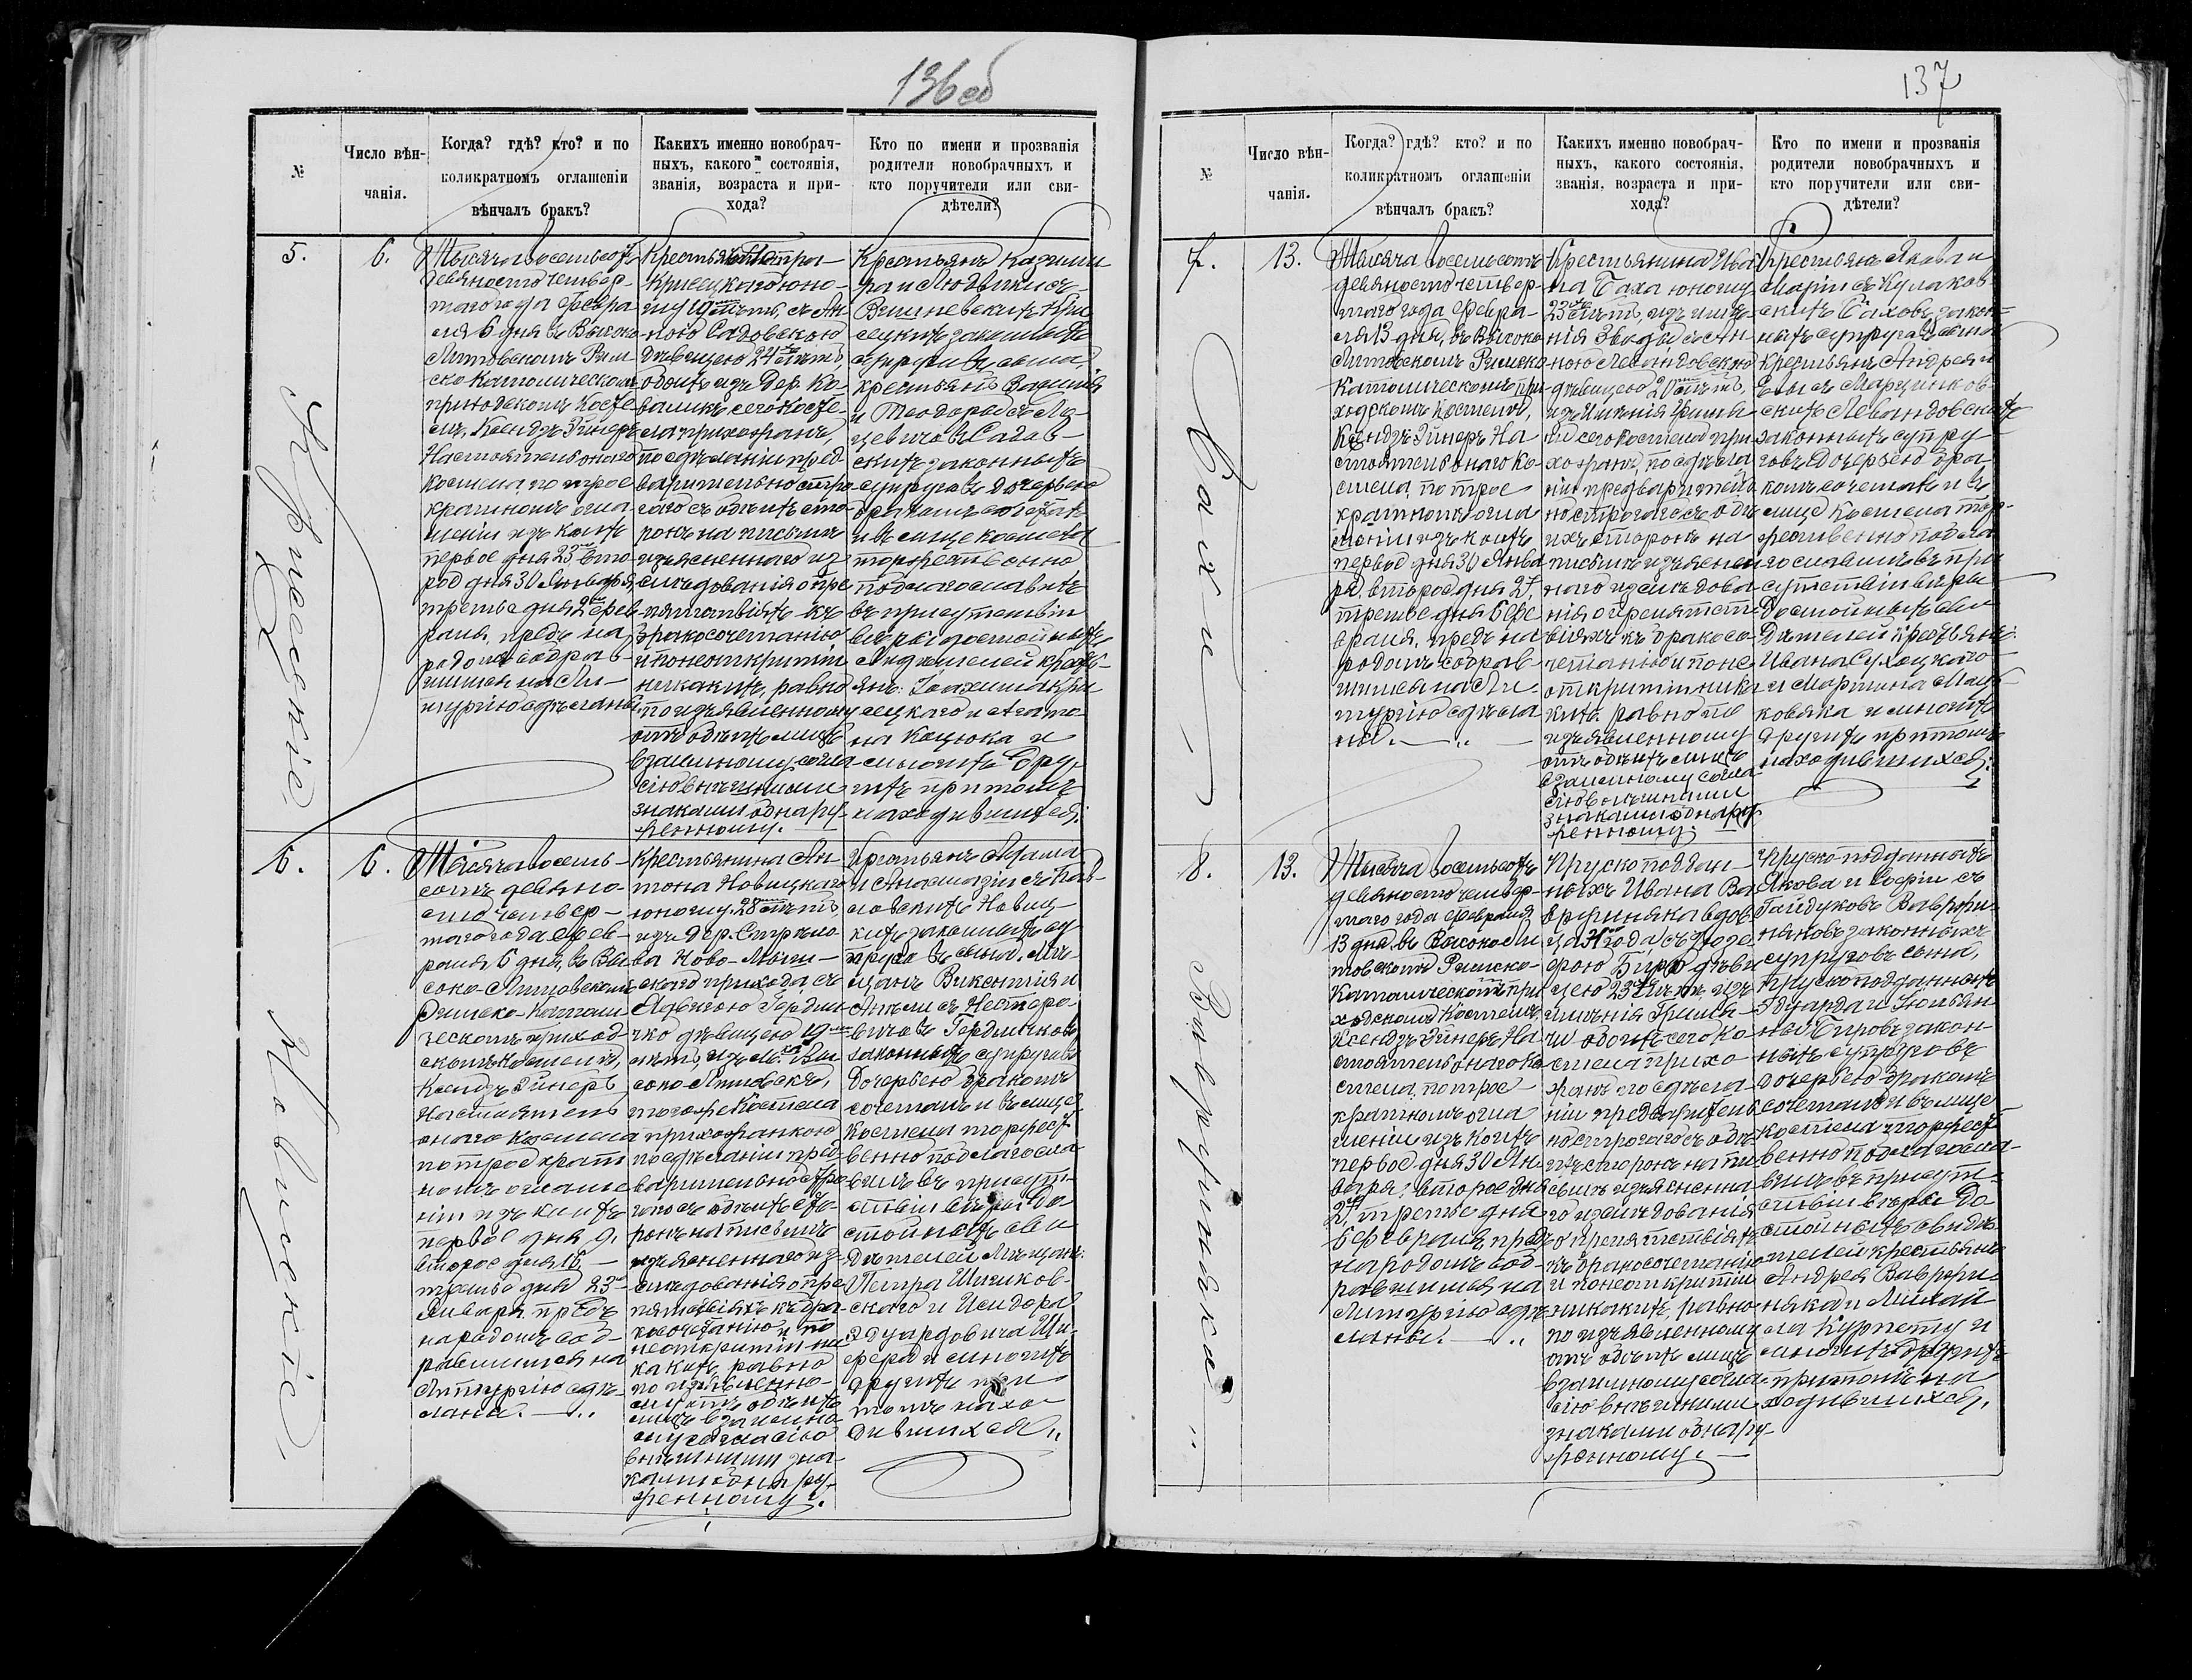 136об
№
Число вѣн-
чанія.
Когда? гдѣ? кто? и по
коликратномъ оглашеніи
вѣнчалъ бракъ?
Каких​ъ именно новобрач-
ныхъ, какого состоянія,
званія, возраста и при-
хода?
Кто по имени и прозванія
родители новобрачныхъ и
кто поручители или сви-
дѣтели?
5.
Крисецкіе
6.
Тысяча восемьсотъ
девяносто четвер-
таго года Февра-
ля 6 дня въ Высоко
Литовскомъ Рим-
ско Католическомъ
приходскомъ Косте-
лѣ, Ксендзъ Эйнеръ
Настоятель онаго
костела, по трое
кратномъ огла-
шеніи изъ коихъ
первое дня 23 вто-
рое дня 30 Января
третье дня 2 Фев-
раля, предъ на
родомъ собрав-
шимся на Ли-
тургію сдѣланы.
Крестьянина
Крисецкаго юно-
шу лѣтъ, съ Ан-
ною Садовскою
дѣвицею 24 лѣтъ
обоихъ изъ дер. Ко-
валикъ сего Косте-
ла прихожанъ,
по сдѣланіи пред-
варительно стро-
гаго съ обѣихъ сто-
ронъ на письмѣ
изъясненнаго из-
слѣдованія о пре
пятствіяхъ къ
бракосочетанію
и по неоткрытіи
никакихъ, равно
по изъявленному
отъ обѣихъ лицъ
взаимному согла-
сію внѣшними
знаками обнару-
женному.
Крестьянъ Казими
ра и Людвики съ
Вишневскихъ Кри
сецкихъ законныхъ
супруговъ сына,
крестьянъ
и Теодоры съ Ла-
цевичовъ Садов-
скихъ законныхъ
супруговъ дочерью
бракомъ сочеталъ
и въ лицѣ костела
торжественно
поблагословилъ
въ присутствіи
вѣры достойныхъ
свидѣтелей кресть-
янъ: Іоахима Кри
сецкаго и Агато-
на Коцюка и
многихъ дру-
гихъ притомъ
находившихся.
6.
Новицкіе
6.
Тысяча восемь-
сотъ девяно-
сто четвер-
таго года Фев-
раля 6 дня, въ Вы
соко-Литовскомъ
Римско-Католи
ческомъ приход
скомъ Костелѣ,
Ксендзъ Эйнеръ
Настоятель
онаго Костела
по трое крат
номъ оглаше
ніи изъ коихъ
первое дня 9,
второе дня 16 -
третье дня 23
Января предъ
народомъ соб-
равшимся на
Литургію сдѣ-
ланы.
Крестьянина Ан-
тона Новицкаго
юношу 28 лѣтъ
изъ дер. Стрѣло
ва Ново-Мыши-
скаго прихода съ
Ядвигою Гордин-
чко дѣвицею 19
лѣтъ, изъ м. Вы
соко-Литовскъ,
тогоже Костела
прихожанкою
по сдѣланіи пред-
варительно стро
гаго съ обѣихъ сто-
ронъ на письмѣ
изъясненнаго из-
слѣдованія о пре
пятствіяхъ къ бра-
косочетанію и по
неоткрытіи ни
какихъ, равно
по изъявленно-
му отъ обѣихъ
лицъ взаимно-
му согласію
внѣшними зна-
ками обнару-
женному.
Крестьянъ Адама
и Анастазіи съ Пав-
ловскихъ Новиц-
кихъ законныхъ су
пруговъ сына, мѣ-
щанъ Викентія и
Анели съ Несторо-
вичовъ Гординчковъ
законныхъ супруговъ
дочерью бракомъ
сочеталъ и въ лицѣ
Костела торжест
венно поблагосла-
вилъ въ присут-
ствіи вѣры до
стойныхъ сви
дѣтелей мѣщанъ:
Петра Шишков-
скаго и Исидора
Эдуардовича Ши-
фера и многихъ
другихъ при
томъ нахо-
дившихся.
137
№
Число вѣн-
чанія.
Когда? гдѣ? кто? и по
коликратномъ оглашеніи
вѣнчалъ бракъ?
Какихъ именно новобрач-
ныхъ, какого состоянія,
званія, возраста и при-
хода?
Кто по имени и прозванія
родители новобрачныхъ и
кто поручители или сви-
дѣтели?
7.
Бахи
13.
Тысяча восемьсотъ
девяносто четвер-
таго года Февра-
ля 13 дня, въ Высоко
Литовскомъ Римско
Католическомъ при
ходскомъ Костелѣ,
Ксендзъ Эйнеръ На
стоятель онаго Ко-
стела, по трое
кратномъ огла
шеніи изъ коихъ
первое дня 30 Янва
ря, второе дня 2,
третье дня 6 Фе
враля, предъ на
родомъ собрав-
шимся на Ли-
тургію сдѣла
ны.
Крестьянина Ива
на Баха юношу
23 лѣтъ, изъ имѣ
нія Зводы съ Ан
ною Левандовскою
дѣвицею 20 лѣтъ,
изъ имѣнія
сего Костела при
хожанъ, по сдѣла
ніи предварительн
но строгаго съ обѣ
ихъ сторонъ на
письмѣ изъяснен
наго изслѣдова
нія о препятст
віяхъ къ бракосо-
четанію и по не
открытіи ника
кихъ, равно по
изъявленному
отъ обѣихъ лицъ
взаимному согла
сію внѣшними
знаками обнару
женному.
Крестьянъ Якова и
Маріи съ Кулаков-
скихъ Баховъ закон-
ныхъ супруговъ сына
крестьянъ Андрея и
Евы съ Марцинков-
скихъ Левандовскихъ
законныхъ супру
говъ дочерью бра-
комъ сочеталъ и въ
лицѣ Костела тор-
жественно побла
гословилъ въ при
сутствіи вѣры
достойныхъ сви
дѣтелей крестьянъ:
Ивана Сухоцкаго
и Мартина Мац-
ковяка и многихъ
другихъ притомъ
находившихся.
8.
Ваврфиняки
13.
Тысяча восемьсотъ
девяносто четвер-
таго года Февраля
13 дня въ Высоко Ли
товскомъ Римско-
Католическомъ при
ходскомъ Костелѣ,
Ксендзъ Эйнеръ, На
стоятель онаго Ко
стела, по трое
кратномъ огла
шеніи изъ коихъ
первое дня 30 Ян
варя, второе дня
2, третье дня
6 Февраля, предъ
народомъ соб-
равшимся на
Литургію сдѣ
ланы.
Прускоподдан-
ныхъ Ивана Ва
врфиняка вдов
ца года съ Юзе
фою Биро дѣви
цею 23 лѣтъ, изъ
имѣнія
обоихъ сего Ко
стела прихо
жанъ по сдѣла
ніи предварительн
но строгаго съ обѣ
ихъ сторонъ на пи
сьмѣ изъясненна
го изслѣдованія
о препятствіяхъ
къ бракосочетанію
и по неоткрытіи
никакихъ, равно
по изъявленному
отъ обѣихъ лицъ
взаимному согла
сію внѣшними
знаками обнару-
женному.
Прускоподданныхъ
Якова и Софіи съ
Гайдуковъ Ваврфи
няковъ законныхъ
супруговъ сына,
прускоподданныхъ
Эдуарда и Юльян
ны Бировъ закон-
ныхъ супруговъ
дочерью бракомъ
сочеталъ и въ лицѣ
костела торжест
венно поблагосла-
вилъ въ присут-
ствіи вѣры до
стойныхъ свидѣ
телей крестьянъ
Андрея Ваврфи
няка и Михаи
ла Курпету и
многихъ другихъ
притомъ на
ходившихся.